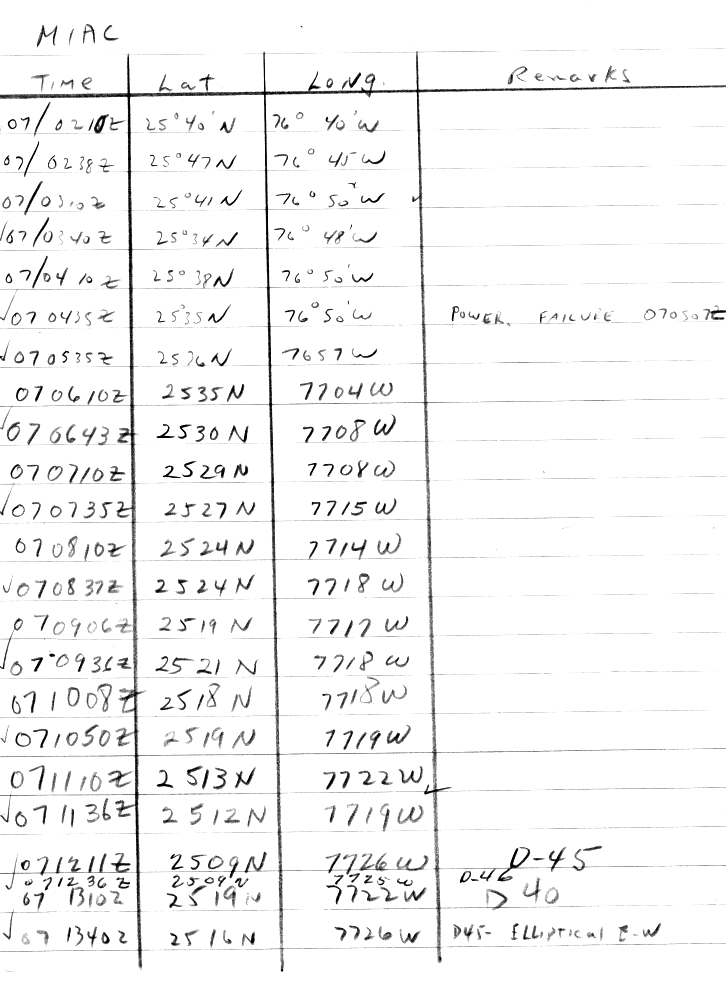 MIAC
Time Lat Long. Remarks
07/0210Z 25°40'N 76° 40'W
07/0238Z 25°47N 76° 45W
07/0310Z 25°41N 76° 50'W ✓
✓07/0340Z 25°34N 76° 48'W
07/0410Z 25°38N 76°50'W
✓070435Z 25°35N 76°50'W POWER. FAILURE 070507Z
✓070535Z 2536N 7657W
070610Z 2535N 7704W
✓070643Z 2530N 7708W
070710Z 2529N 7708W
✓070735Z 2527N 7715W
070810Z 2524N 7714W
✓070837Z 2524N 7718W
070906Z 2519N 7717W
✓070936Z 2521N 7718W
071008Z 2518N 7718W
✓071050Z 2519N 7719W
071110Z 2513N 7722W ✓
✓071136Z 2512N 7719W
071211Z 2509N 7726W D-45
✓071236Z 2509N 7725W D-46
071310Z 2519N 7722W D 40
✓071340Z 2516N 7726W D45- Elliptical E-W